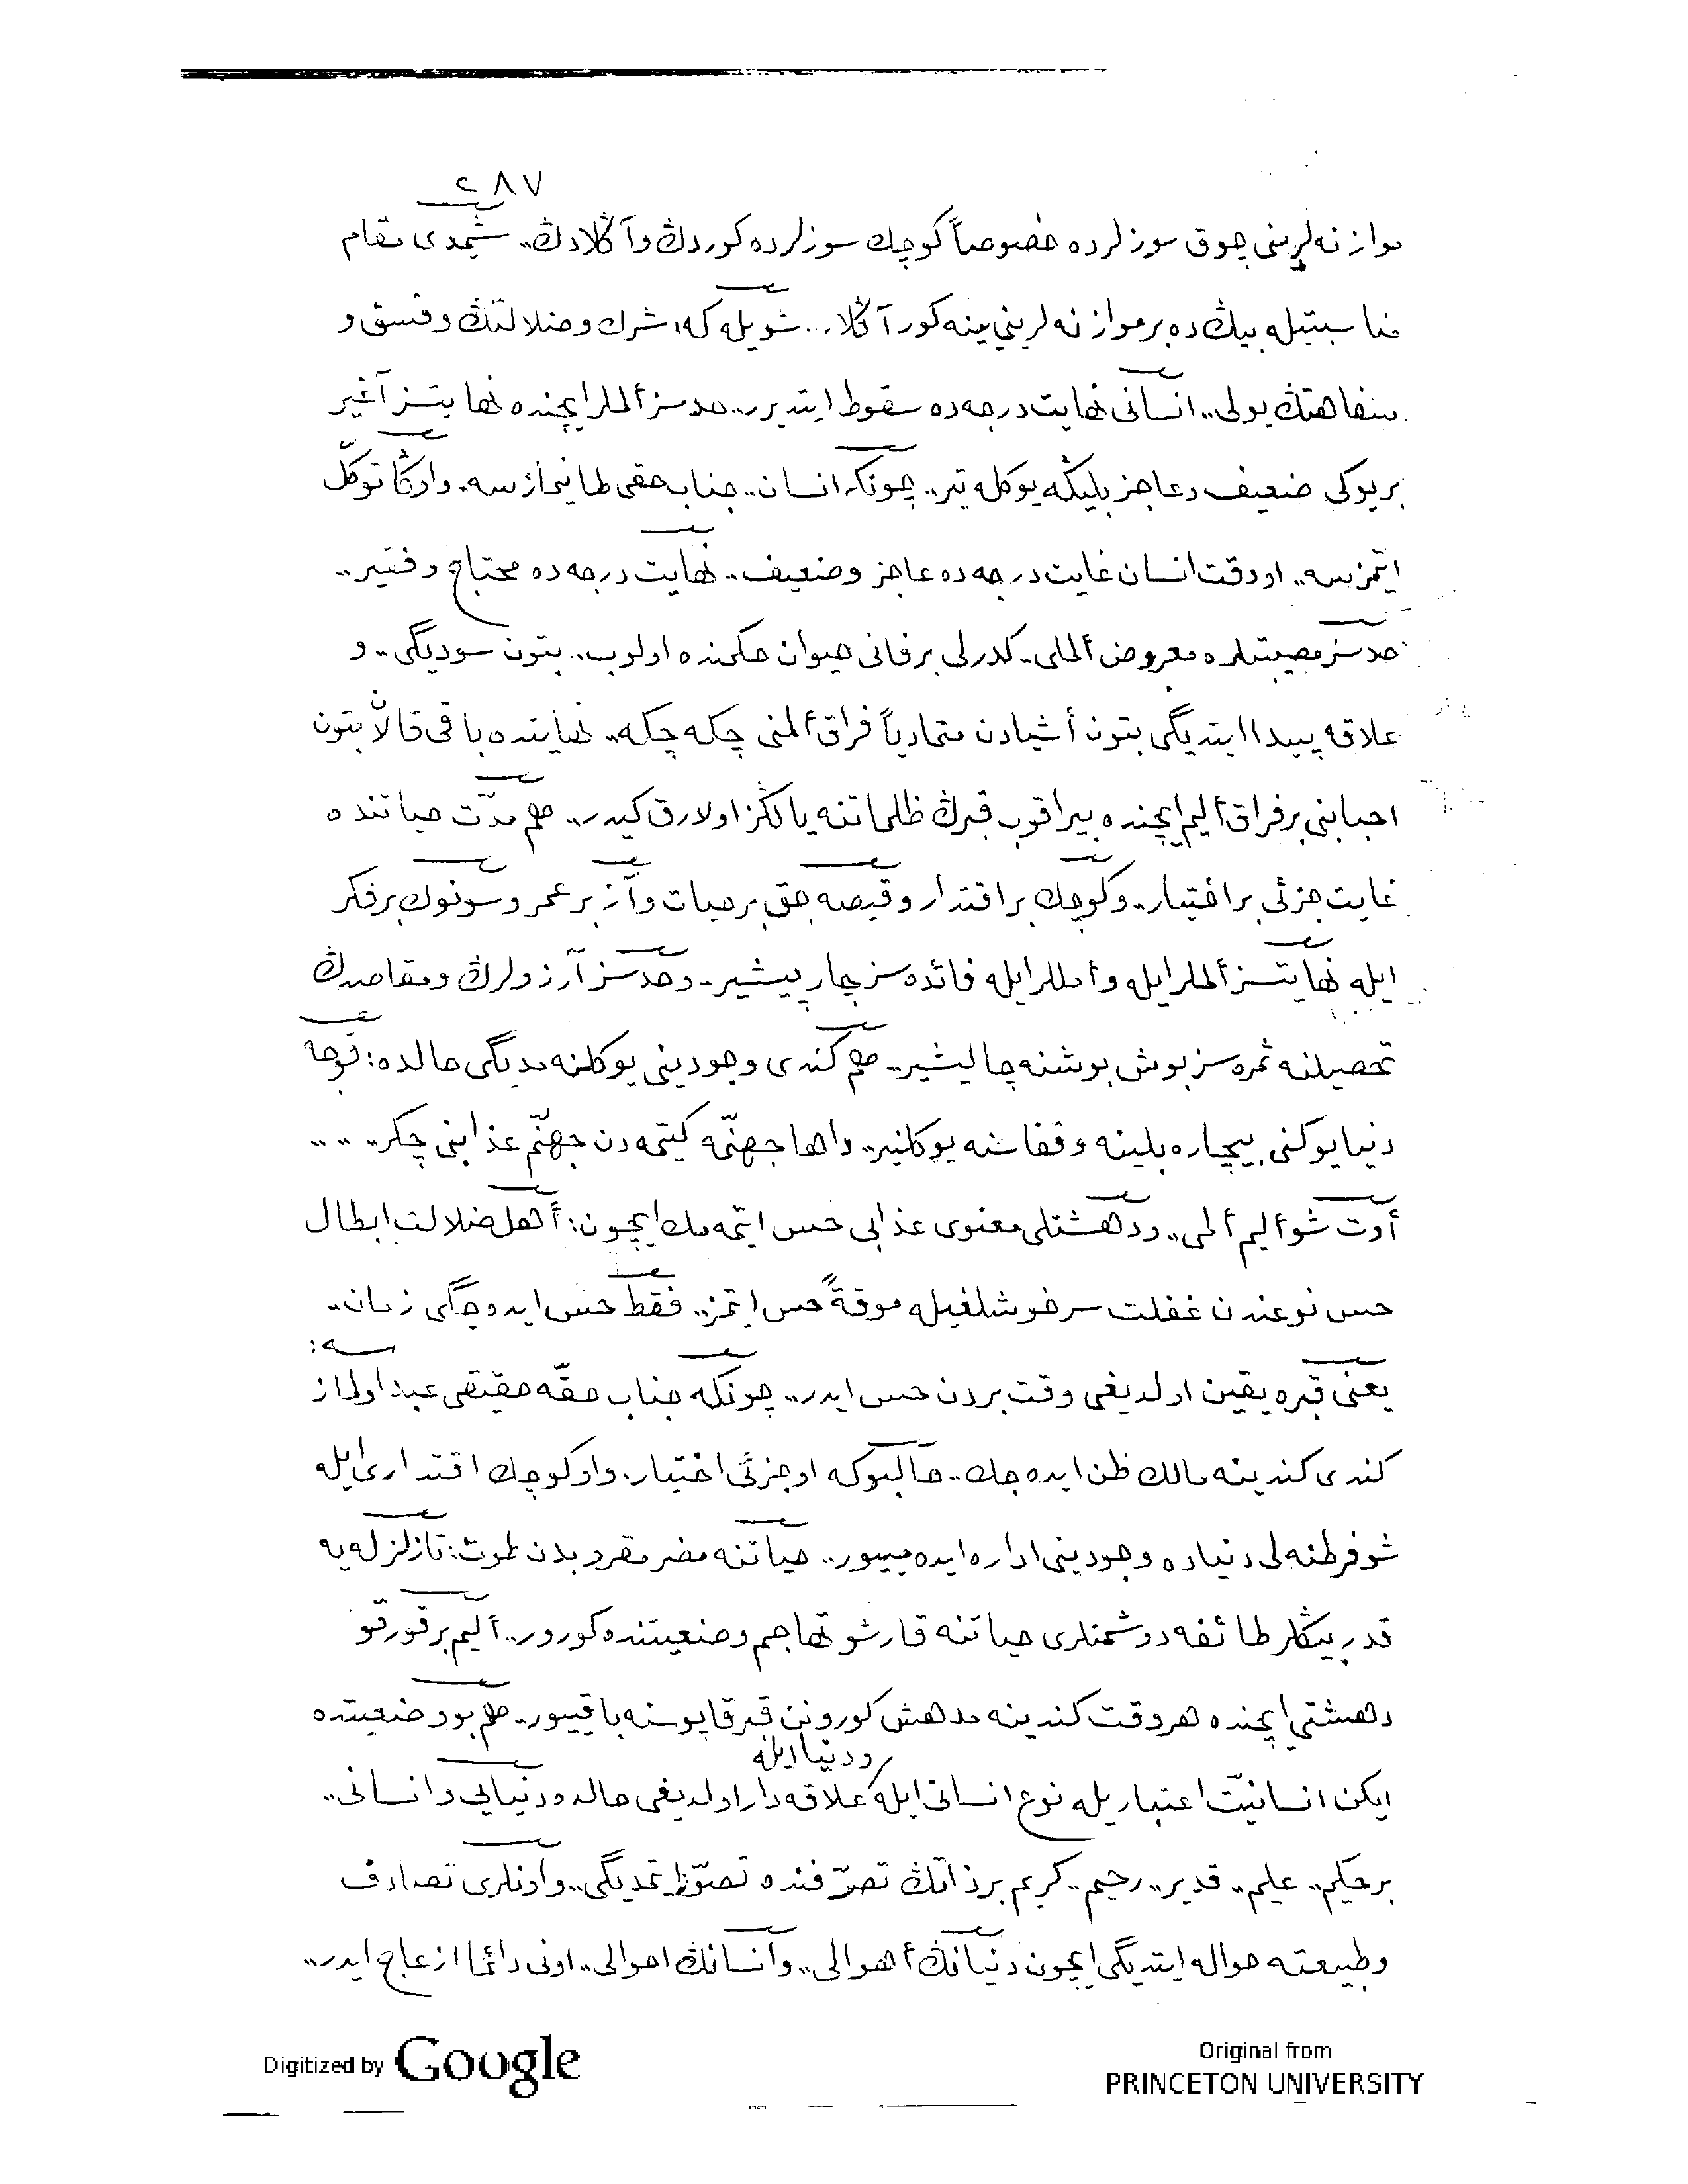 ٢٨٧
موازنه‌لرینی چوق سوزلرده خصوصاً كوچك سوزلرده كوردڭ وآڭلادڭ،، شیمدی مقام
مناسبتیله بیڭده برموازنه‌لرینی ینه كور آڭلا... شویله‌كه، شرك وضلالتڭ وفسق و
سفاهتڭ یولی،، انسانی نهایت درجه‌ده سقوط ایتدیرر،، حدسز ألملر ایچنده نهایتسز آغیر
بریوكی ضعیف وعاجز بلیڭه یوكله‌تیر،، چونكه انسان،، جناب حقی طانیمازسه، واوڭا توكّل
ایتمزسه،، اووقت انسان غایت درجه‌ده عاجز وضعیف،، نهایت درجه‌ده محتاج وفقیر،،
حدسز مصیبتلره معروض ألملی،، كدرلی برفانی حیوان حكمنده اولوب،، بتون سودیگی،، و
علاقه پیدا ایتدیگی بتون أشیادن متمادیاً فراق ألمنی چكه چكه،، نهایتده باقی قالان بتون
احبابنی برفراق ألیم ایچنده بیراقوب قبرڭ ظلماتنه یالڭز اولارق كیدر،، هم مدّت حیاتنده
غایت جزئی براختیار،، وكوچك براقتدار وقیصه‌جق برحیات وآز برعمر وسونوك برفكر
ایله نهایتسز ألملر ایله وأمللر ایله فائده‌سز چارپیشیر،، وحدسز آرزولرڭ ومقاصدڭ
تحصیلنه ثمره‌سز بوش بوشنه چالیشیر،، هم كندی وجودینی یوكلنه‌مدیگی حالده: قوجه
دنیا یوكنی بیچاره بلینه وقفاسنه یوكلنیر،، داها جهنّمه كیتمه‌دن جهنّم عذابنی چكر،، ،، ،،
أوت شو ألیم ألمی،، ودهشتلی معنوی عذابی حس ایتمه‌مك ایچون: أهل ضلالت ابطال
حس نوعندن غفلت سرخوشلغیله موقةً حس ایتمز،، فقط حس ایده‌جگی زمان،،
سه:
یعنی قبره یقین اولدیغی وقت بردن حس ایدر،، چونكه جناب حقّه حقیقی عبد اولماز
كندی كندینه مالك ظن ایده‌جك،، حالبوكه او جزئی اختیار، واو كوچك اقتداری ایله
شو فرطنه‌لی دنیاده وجودینی اداره ایده‌مییور،، حیاتنه مضر مقروبدن طوت: تا زلزله‌یه
قدر بیڭلر طائفه دوشمنلری حیاتنه قارشو تهاجم وضعیتنده كورور،، ألیم برقورقو
دهشتی ایچنده هروقت كندینه مدهش كورونن قبر قاپوسنه باقییور،، هم بو وضعیتده
ودنیا ایله
ایكن انسانیّت اعتباریله نوع انسانی ایله علاقه‌دار اولدیغی حالده دنیایی وانسانی،،
برحكیم،، علیم،، قدیر،، رحیم،، كریم برذاتڭ تصرّفنده تصوّر ایتمدیگی،، واونلری تصادف
وطبیعته حواله ایتدیگی ایچون دنیانڭ أهوالی،، وانسانڭ احوالی،، اونی دائما ازعاج ایدر،،
Digitized by Google
Original from
PRINCETON UNIVERSITY